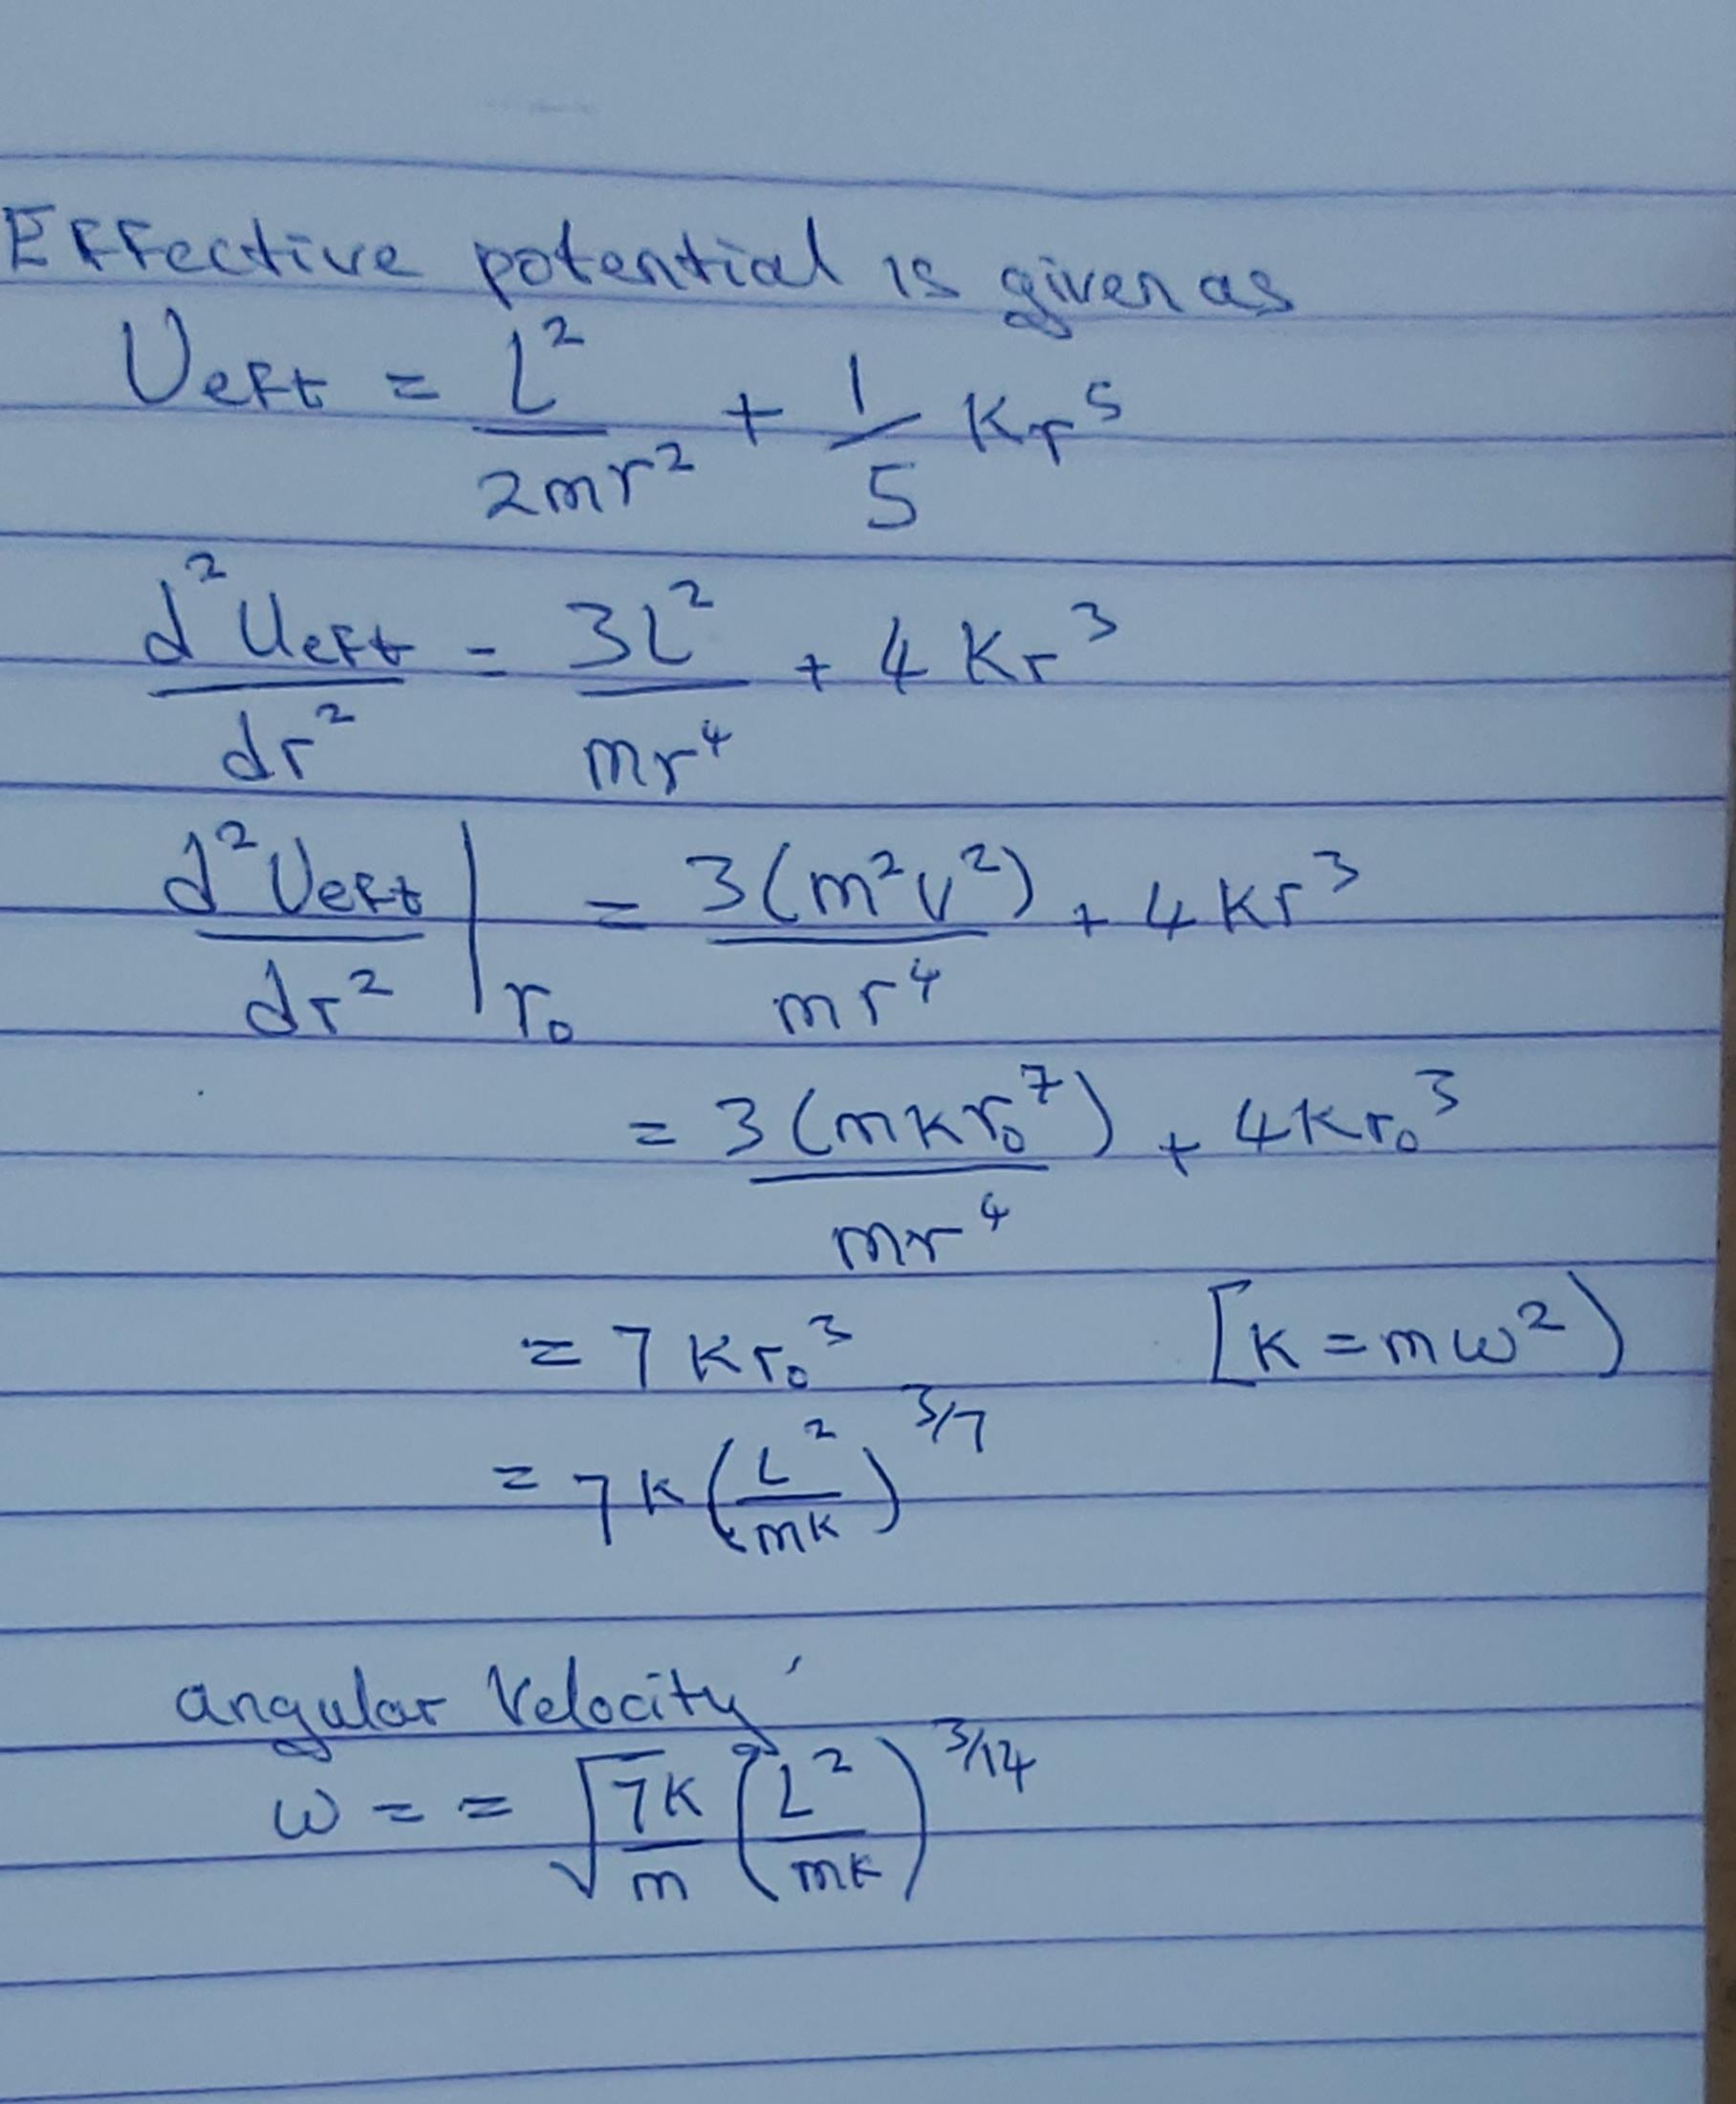 Effective potential is given as
Ueff = L²/2mr² + 1/5 Kr⁵
d²Ueff/dr² = 3L²/mr⁴ + 4Kr³
d²Ueff/dr² |r₀ = 3(m²v²)/mr⁴ + 4Kr³
= 3(mkr₀⁷)/mr⁴ + 4Kr₀³
= 7Kr₀³ [K = mω²)
= 7K(L²/mK)^3/7
angular Velocity
ω = = √7K/m (L²/mK)^3/14